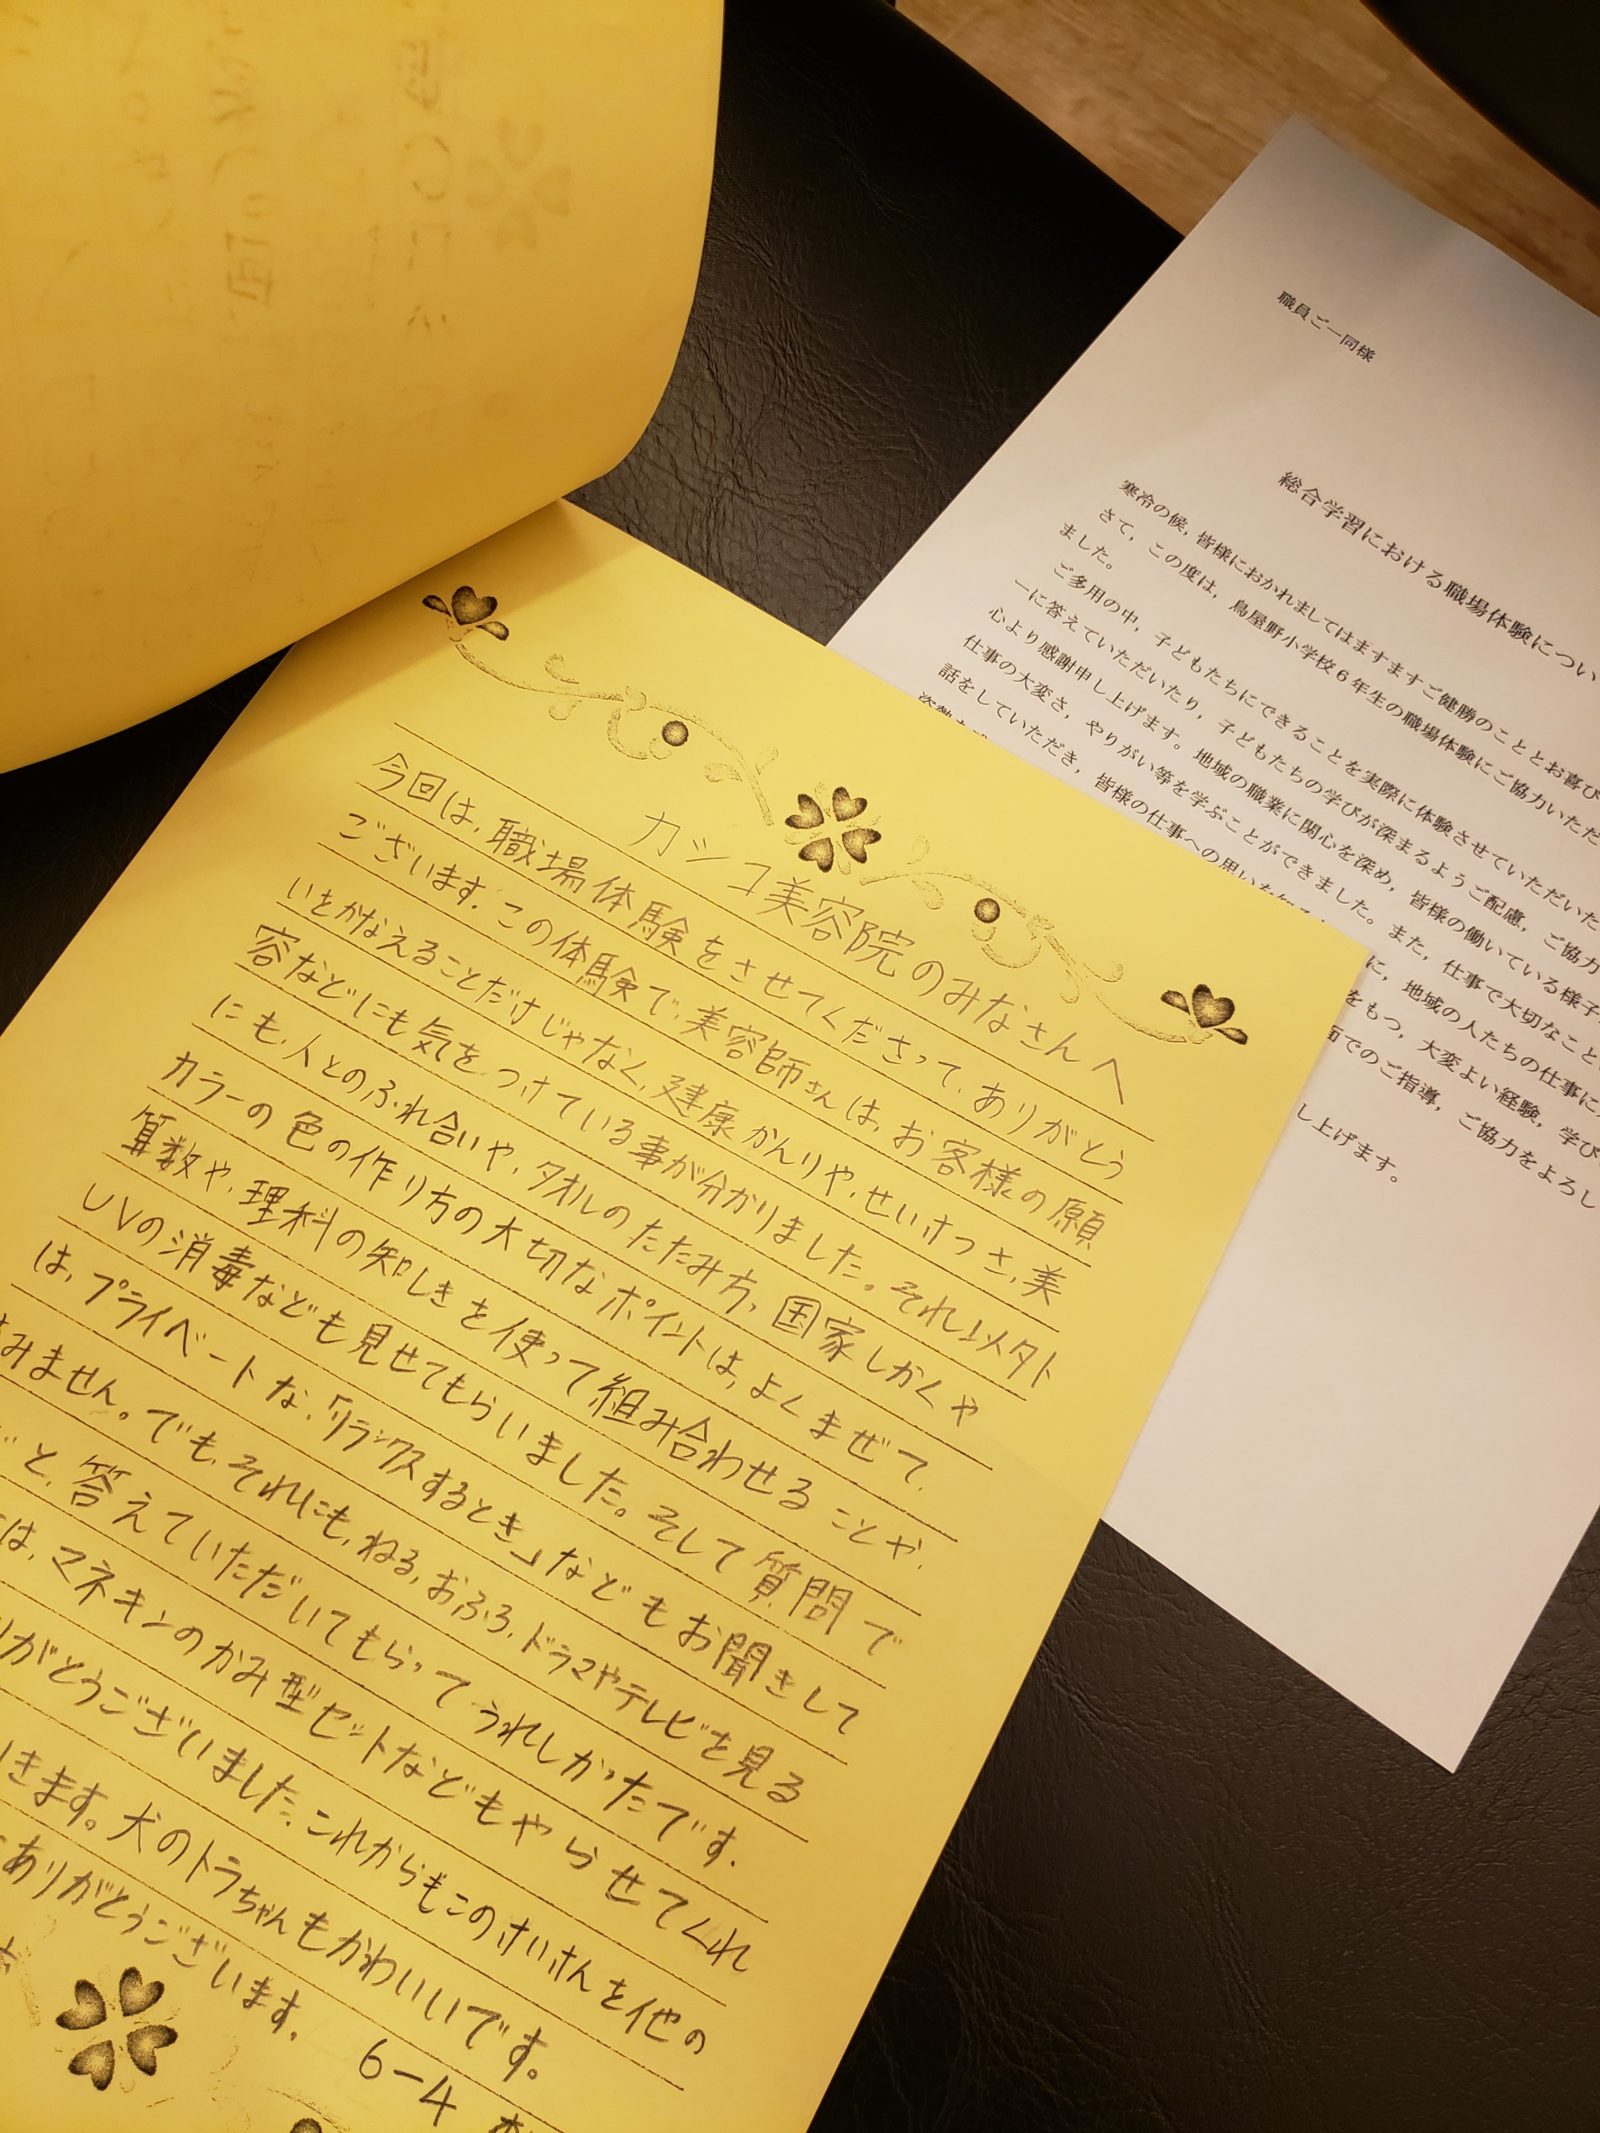 カシコ美容院のみなさんへ
今回は、職場体験をさせてくださって、ありがとう
ございます。この体験で、美容師さんは、お客様の願
いをかなえることだけじゃなく、健康かんりや、せいけつさ、美
容などにも気をつけている事が分かりました。それ以外
にも、人とのふれ合いや、タオルのたたみ方、国家しかくや
カラーの色の作り方の大切なポイントは、よくまぜて、
算数や、理科の知しきを使って組み合わせることや、
UVの消毒なども見せてもらいました。そして質問で
は、プライベートな、「リラックスするとき」などもお聞きして
みません。でも、それにも、ねる、おふろ、ドラマやテレビを見る
と、答えていただいてもらってうれしかったです。
は、マネキンのかみ型セットなどもやらせてくれ
がとうございました。これからもこのけいけんを他の
きます。犬のトラちゃんもかわいいです。
ありがとうございます。
6-4
職員ご一同様
総合学習における職場体験につい
寒冷の候，皆様におかれましてはますますご健勝のこととお喜び
さて，この度は，鳥屋野小学校6年生の職場体験にご協力いただ
ました。
ご多用の中，子どもたちにできることを実際に体験させていただいた
一に答えていただいたり，子どもたちの学びが深まるようご配慮，ご協力
心より感謝申し上げます。地域の職業に関心を深め，皆様の働いている様子
仕事の大変さ，やりがい等を学ぶことができました。また，仕事で大切なこと
話をしていただき，皆様の仕事への思いを
に，地域の人たちの仕事に
をもつ，大変よい経験，学び
面でのご指導，ご協力をよろし
し上げます。